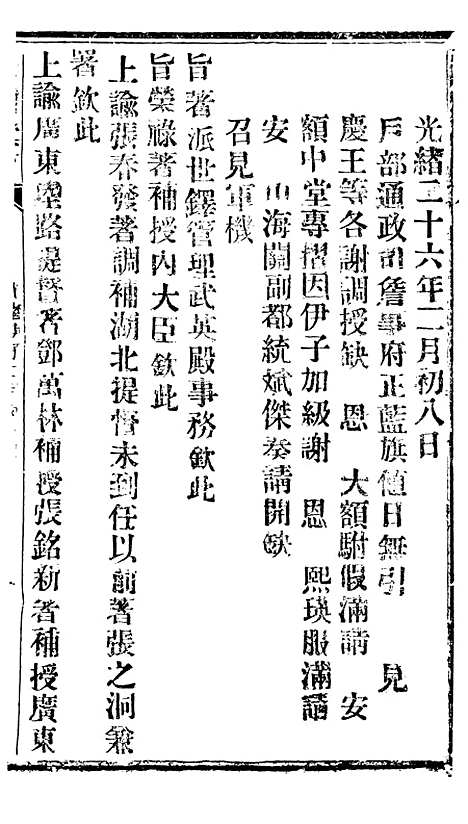 光緒二十六年二月初八日
戶部通政司詹事府正藍旗值日無引 見
慶王等各謝調授缺 恩 大額駙假滿請 安
額中堂專摺因伊子加級謝 恩 熙瑛服滿請
安 山海關副都統斌傑奏請開缺
召見軍機
旨著派世鐸管理武英殿事務欽此
旨榮祿著補授內大臣欽此
上諭張春發著調補湖北提督未到任以前著張之洞兼
署欽此
上諭廣東陸路提督著鄧萬林補授張銘新著補授廣東